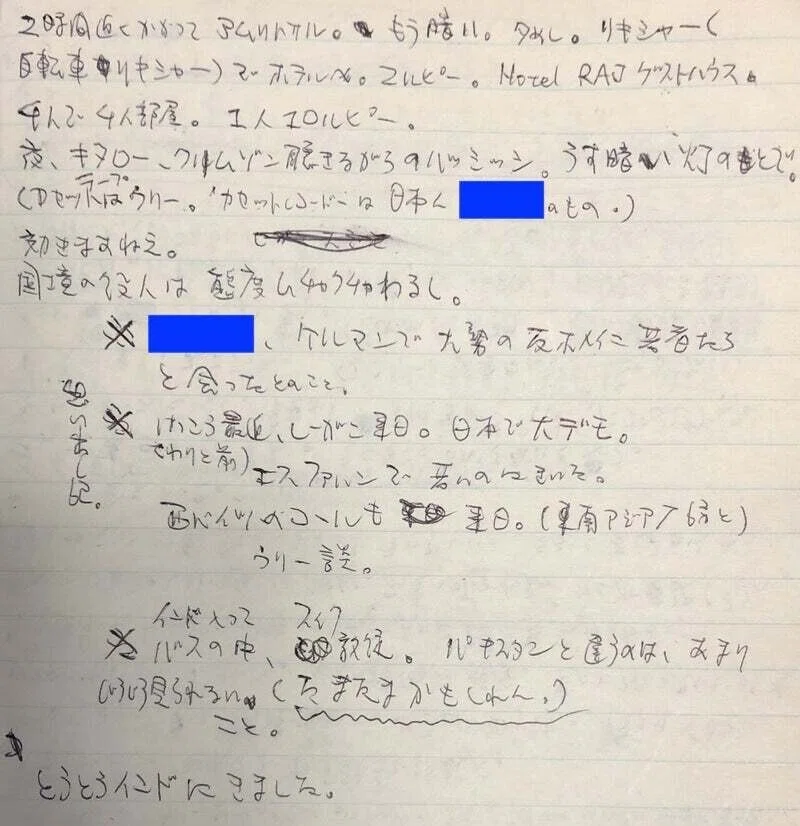 2時間近くかかってアムリトサル。もう暗い。夕めし。リキシャー(
自転車リキシャー)でホテルへ。2ルピー。Hotel RAJ ゲストハウス。
4人で4人部屋。1人10ルピー。
夜、キタロー、クリムゾン聴きながらのバッミッシ。うす暗い灯のもとで。
(カセットテープはウリー。カセットレコーダーは日本人 のもの。)
効きますねえ。
国境の役人は態度ムチャクチャわるし。
※ 、ケルマンで大勢の反ホメイニ若者たち
と会ったとのこと、
思い出し記。
※ けっこう最近、レーガン来日。日本で大デモ。
(わりと前)
エスファハンで若いのにきいた。
西ドイツのコールも来日。(東南アジア7ヶ国と)
ウリー談。
インド入って スィク
※ バスの中、教徒。パキスタンと違うのは、あまり
じろじろ見られない。(たまたまかもしれん。)
こと。
とうとうインドにきました。